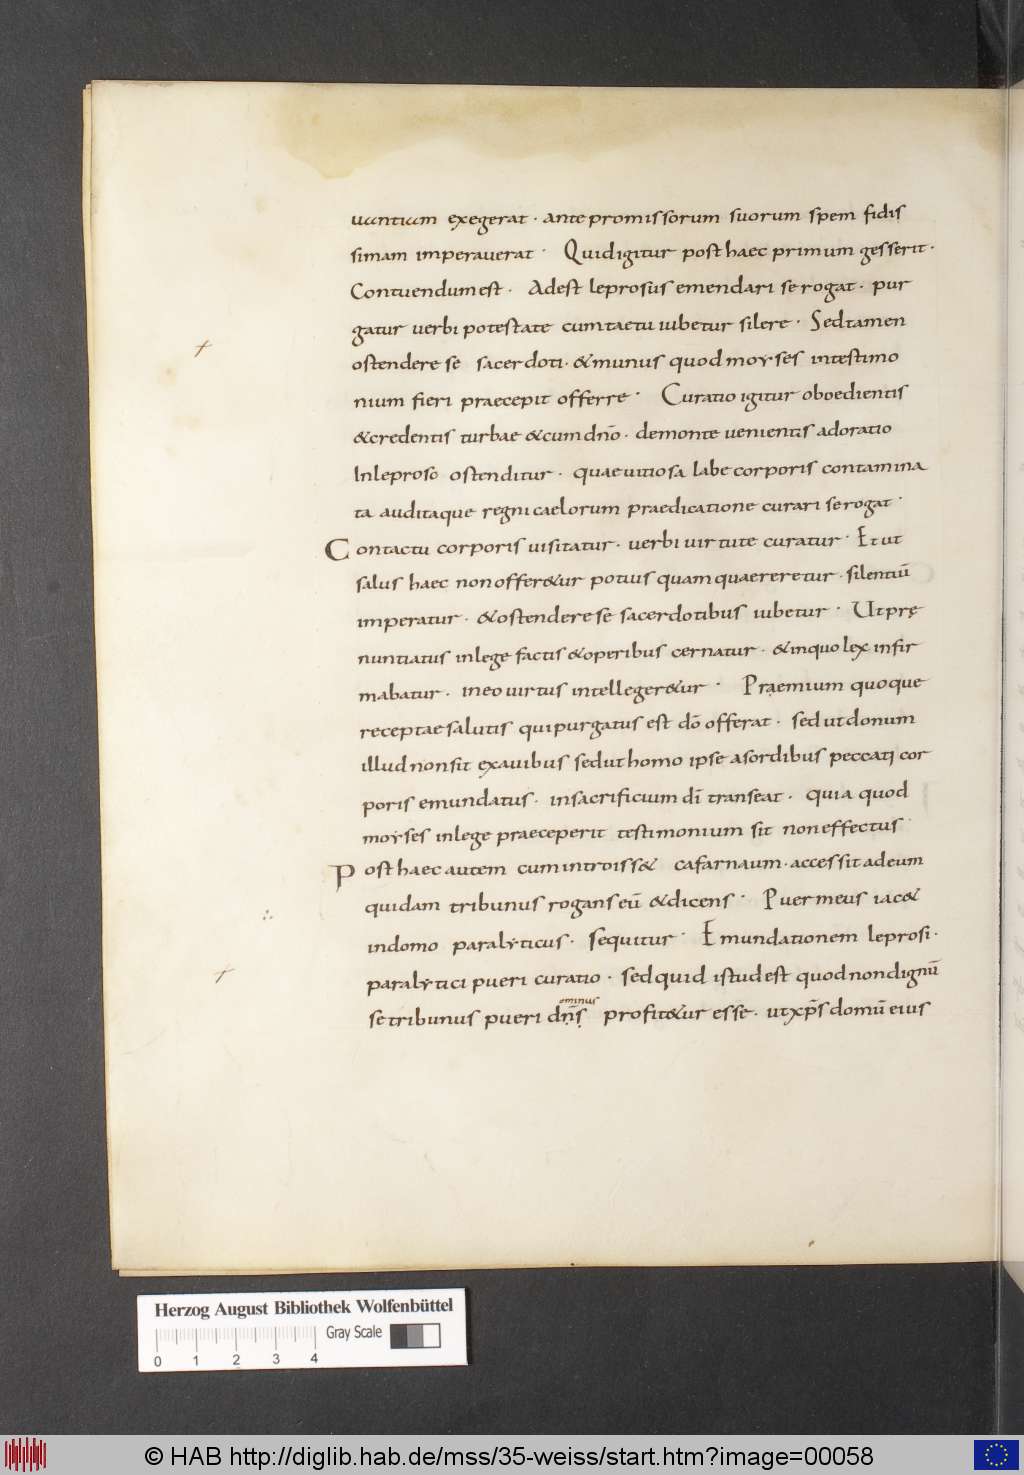 uantiam exegerat · ante promissorum suorum spem fidis
simam imperauerat · Quid igitur post haec primum gesserit ·
Contuendum est · Adest leprosus emendari se rogat · pur
gatur uerbi potestate cum tactu iubetur silere · Sed tamen
ostendere se sacerdoti · & munus quod moyses in testimo
nium fieri praecepit offerre · Curatio igitur oboedientis
& credentis turbae & cum dn̄o · de monte uenientis adoratio
In leproso ostenditur · quae uitiosa labe corporis contamina
ta audita que regni caelorum praedicatione curari se rogat ·
Contactu corporis uisitatur · uerbi uirtute curatur · Et ut
salus haec non offer&ur potius quam quaereretur · silentiū
imperatur · & ostendere se sacerdotibus iubetur · Ut prę
nuntiatus in lege factis & operibus cernatur · & in quo lex infir
mabatur · in eo uirtus intelleger&ur · Praemium quoque
receptae salutis qui purgatus est dō offerat · sed ut donum
illud non sit ex auibus sed ut homo ipse a sordibus peccati cor
poris emundatus · in sacrificium dī transeat · quia quod
moyses in lege praeceperit testimonium sit non effectus ·
Post haec autem cum introiss& cafarnaum · accessit ad eum
quidam tribunus rogans eū & dicens · Puer meus iac&
in domo paralyticus · sequitur · Emundationem leprosi ·
paralytici pueri curatio · sed quid istud est quod non dignū
ominus
se tribunus pueri dn̄s profit&ur esse · ut xp̄s domū eius
Herzog August Bibliothek Wolfenbüttel
Gray Scale
0 1 2 3 4
© HAB http://diglib.hab.de/mss/35-weiss/start.htm?image=00058